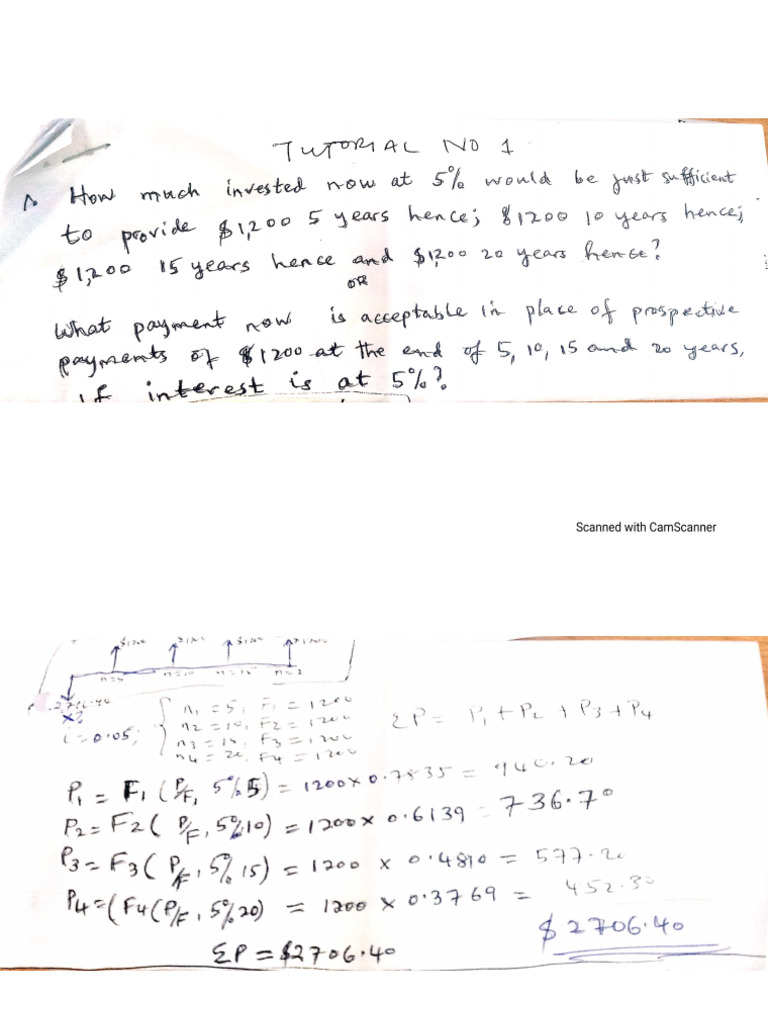 TUTORIAL NO 1
1. How much invested now at 5% would be just sufficient
to provide $1,200 5 years hence; $1200 10 years hence;
$1,200 15 years hence and $1,200 20 years hence?
OR
What payment now is acceptable in place of prospective
payments of $1200 at the end of 5, 10, 15 and 20 years,
if interest is at 5%?
Scanned with CamScanner
n=5 n=10 n=15
2706.40
X?
n1 = 5, F1 = 1200
n2 = 10, F2 = 1200
i = 0.05;
n3 = 15, F3 = 1200
n4 = 20, F4 = 1200
ΣP = P1 + P2 + P3 + P4
P1 = F1 (P/F, 5% 5) = 1200 x 0.7835 = 940.20
P2 = F2 ( P/F, 5% 10) = 1200 x 0.6139 = 736.70
P3 = F3 ( P/F, 5% 15) = 1200 x 0.4810 = 577.20
P4 = (F4 (P/F, 5% 20) = 1200 x 0.3769 = 452.30
$2706.40
ΣP = $2706.40